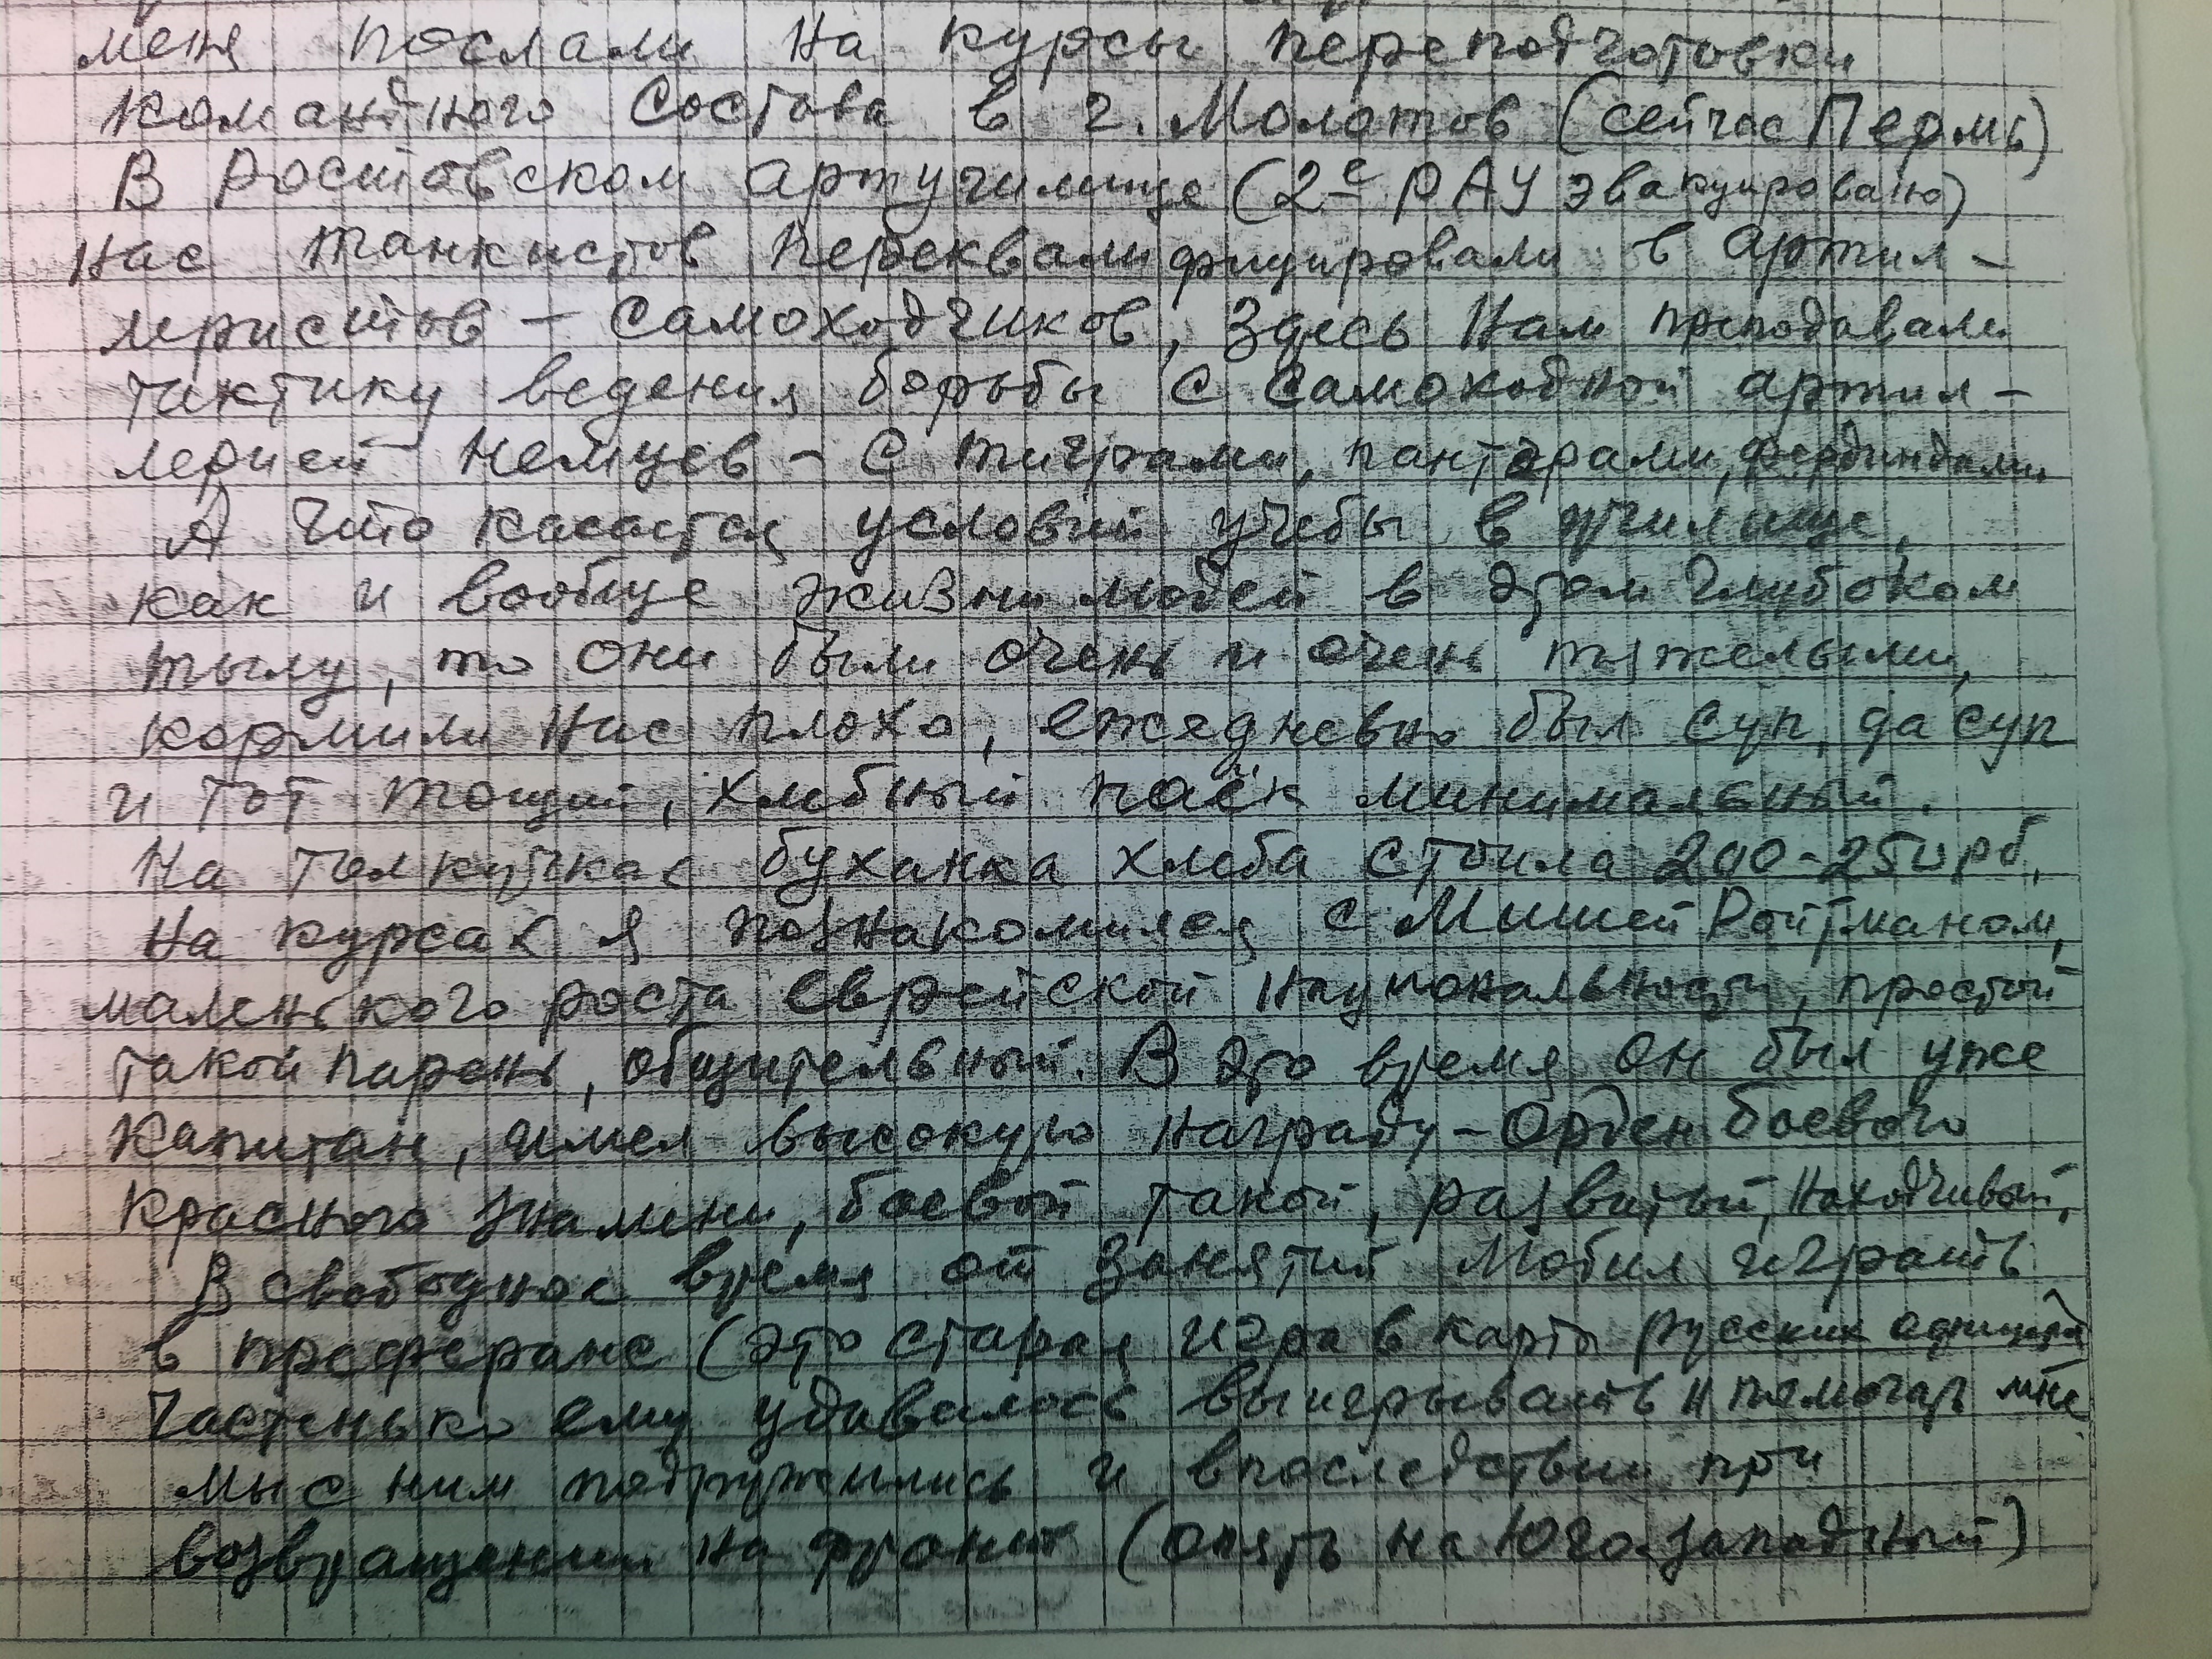 меня послали на курсы переподготовки
командного состава в г. Молотов (сейчас Пермь)
В Ростовском артучилище (2-е РАУ эвакуировано)
нас танкистов переквалифицировали в артил-
леристов - самоходчиков, здесь нам преподавали
тактику ведения борьбы с самоходной артил-
лерией немцев - с тиграми, пантерами, фердиндами.
А что касается условий учебы в училище,
как и вообще жизни людей в этом глубоком
тылу, то они были очень и очень тяжелыми,
кормили нас плохо, ежедневно был суп, да суп
и тот тощий, хлебный паёк минимальный.
На толкучках буханка хлеба стоила 200-250 рб.
На курсах я познакомился с Мишей Ройтманом,
маленького роста еврейской национальности, простой
такой парень, общительный. В это время он был уже
капитан, имел высокую награду - Орден боевого
Красного Знамени, боевой такой, развитый, находчивый,
В свободное время от занятий любил играть
в преферанс (это старая игра в карты русских офицеров
частенько ему удавалось выигрывать и помогать мне
мы с ним подружились и впоследствии при
возвращении на фронт (опять на Юго-западный)